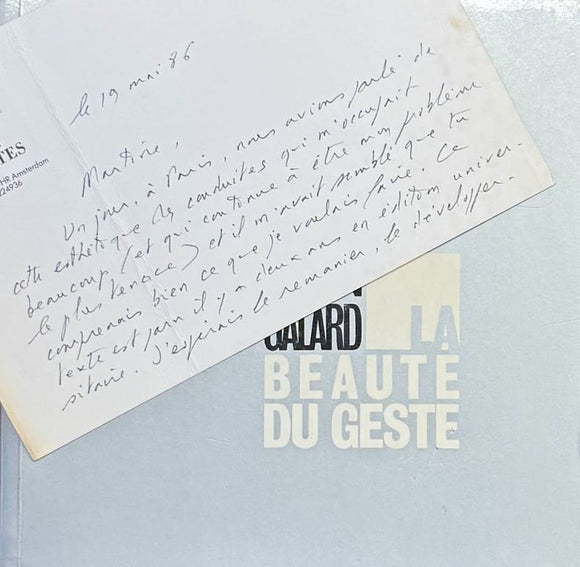 le 19 mai 86
TES
HR Amsterdam
224936
Martine,
Un jour, à Paris, nous avions parlé de
cette esthétique des conduites qui m'occupait
beaucoup (et qui continue à être mon problème
le plus tenace) et il m'avait semblé que tu
comprenais bien ce que je voulais faire. Ce
texte est paru il y a deux ans en édition univer-
sitaire. J'espérais le remanier, le développer.
GALARD
LA
BEAUTÉ
DU GESTE